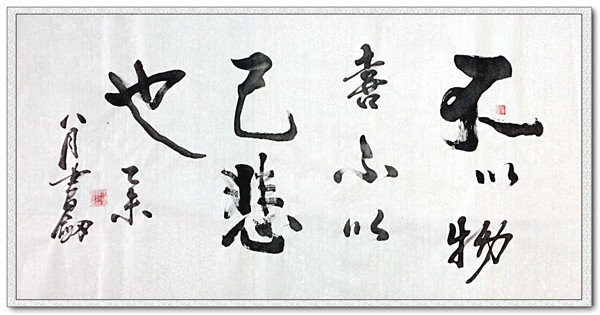 不以物
喜不以
己悲
也 乙未
八月書